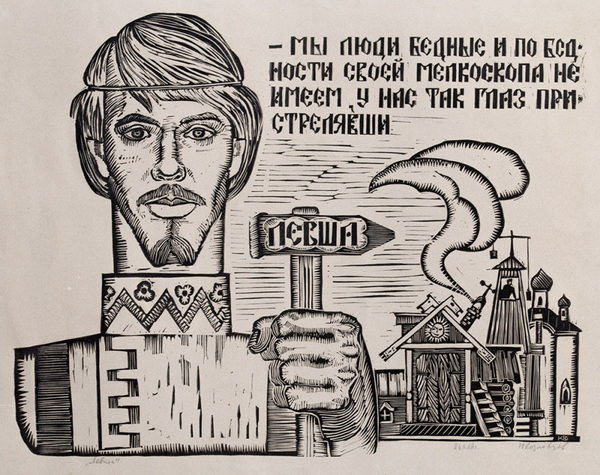 – МЫ ЛЮДИ БЕДНЫЕ И ПО БЕД-
НОСТИ СВОЕЙ МЕЛКОСКОПА НЕ
ИМЕЕМ, У НАС ТАК ГЛАЗ ПРИ-
СТРЕЛЯВШИ
ЛЕВША
"Левша"